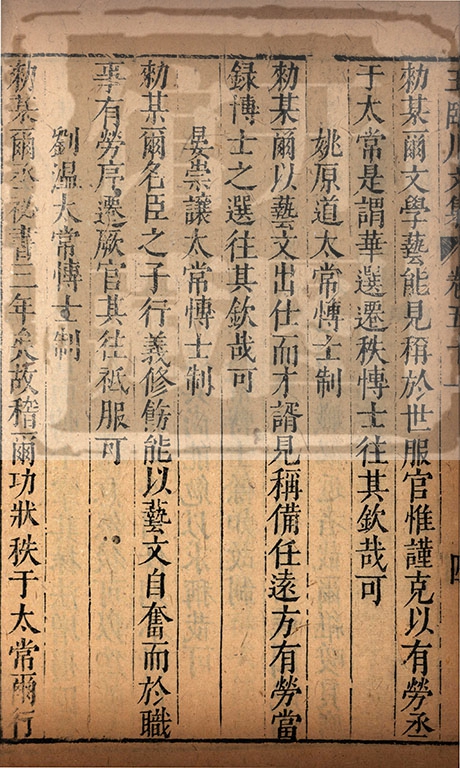 王臨川文集 卷五十一 四
勑某爾文學藝能見稱於世服官惟謹克以有勞丞
于太常是謂華選遷秩愽士往其欽哉可
姚原道太常愽士制
勑某爾以藝文出仕而才諝見稱備任遠方有勞當
録博士之選往其欽哉可
晏崇讓太常愽士制
勑某爾名臣之子行義修飭能以藝文自奮而於職
事有勞序遷厥官其往祗服可
劉溫太常愽士制
勑某爾丞祕書三年矣故稽爾功狀秩于太常爾行